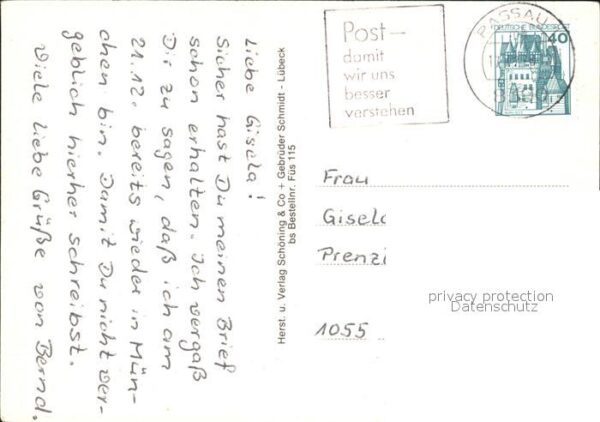 Liebe Gisela!
Sicher hast Du meinen Brief
schon erhalten. Ich vergaß
Dir zu sagen, daß ich am
21.12. bereits wieder in Mün-
chen bin. Damit Du nicht ver-
geblich hierher schreibst.
Viele liebe Grüße von Bernd.
Herst. u. Verlag Schöning & Co + Gebrüder Schmidt - Lübeck
bs Bestellnr. Füs 115
Post-
damit
wir uns
besser
verstehen
PASSAU
DEUTSCHE BUNDESPOST
40
Frau
Gisel
Prenz
privacy protection
Datenschutz
1055